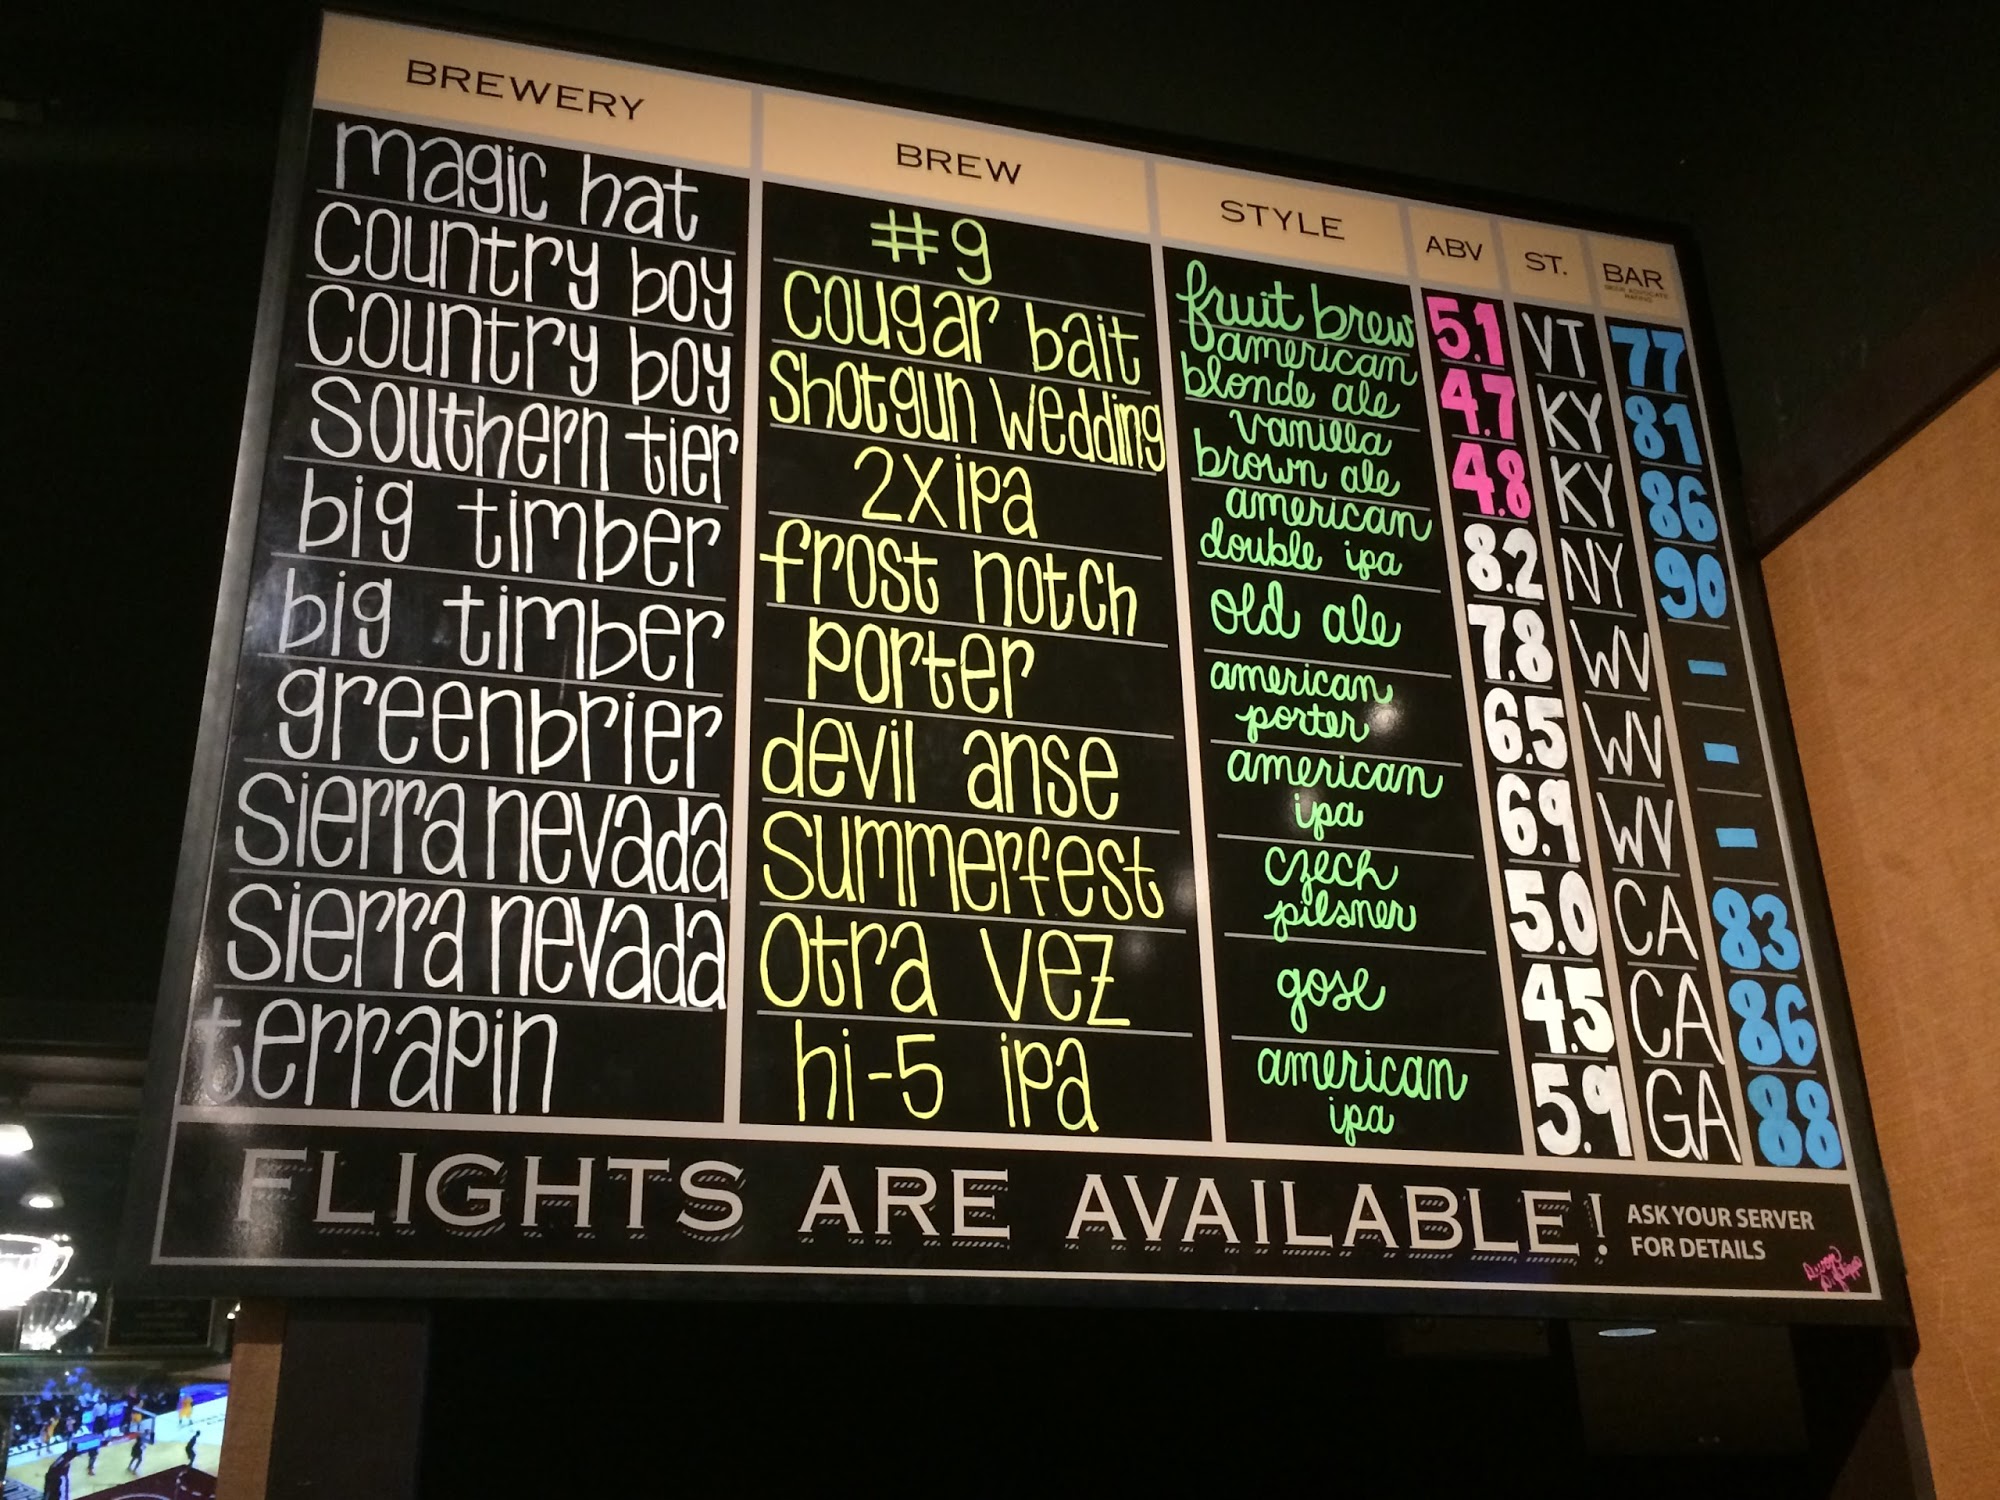 BREWERY BREW STYLE ABV ST. BAR
BEER ADVOCATE RATING
magic hat #9 fruit brew 5.1 VT 77
country boy cougar bait american blonde ale 4.7 KY 81
country boy shotgun wedding vanilla brown ale 4.8 KY 86
southern tier 2Xipa american double ipa 8.2 NY 90
big timber frost notch old ale 7.8 WV -
big timber porter american porter 6.5 WV -
greenbrier devil anse american ipa 6.9 WV -
sierra nevada summerfest czech pilsner 5.0 CA 83
sierra nevada otra vez gose 4.5 CA 86
terrapin hi-5 ipa american ipa 5.9 GA 88
FLIGHTS ARE AVAILABLE!
ASK YOUR SERVER
FOR DETAILS